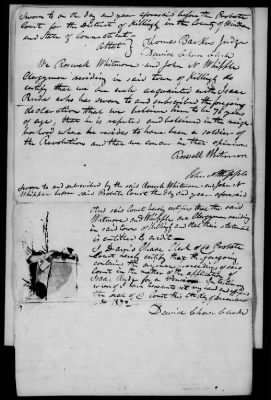 Sworn to on the day and year aforesaid before the Probate
Court for the district of Killingly in the County of Windham
and State of Connecticut
Attest Thomas Backus Judge
David Chase Clerk
We Roswell Whitmore and John N Whipple
Clergymen residing in said town of Killingly do
certify that we are well acquainted with Isaac
who has sworn to and subscribed the foregoing
declaration that we believe him to be years
of age, that he is reputed and believed in the
hood where he resides to have been a soldier of
the Revolution and that we concur in that opinion
Roswell Whitmore
John N Whipple
Sworn to and subscribed by the said Roswell Whitmore and John N
Whipple before said Probate Court the day and year aforesaid
And said Court hereby certifies that the said
Whitmore and Whipple are Clergymen residing
in said town of Killingly and that their statement
is entitled to credit
I David Chase Clerk of the Probate
Court hereby certify that the foregoing
contains the original proceedings of said
Court in the matter of the application of
Isaac for a Pension In testimony
whereof I have hereunto set my hand and affixed
the seal of Court this day of
AD 1832
David Chase Clerk